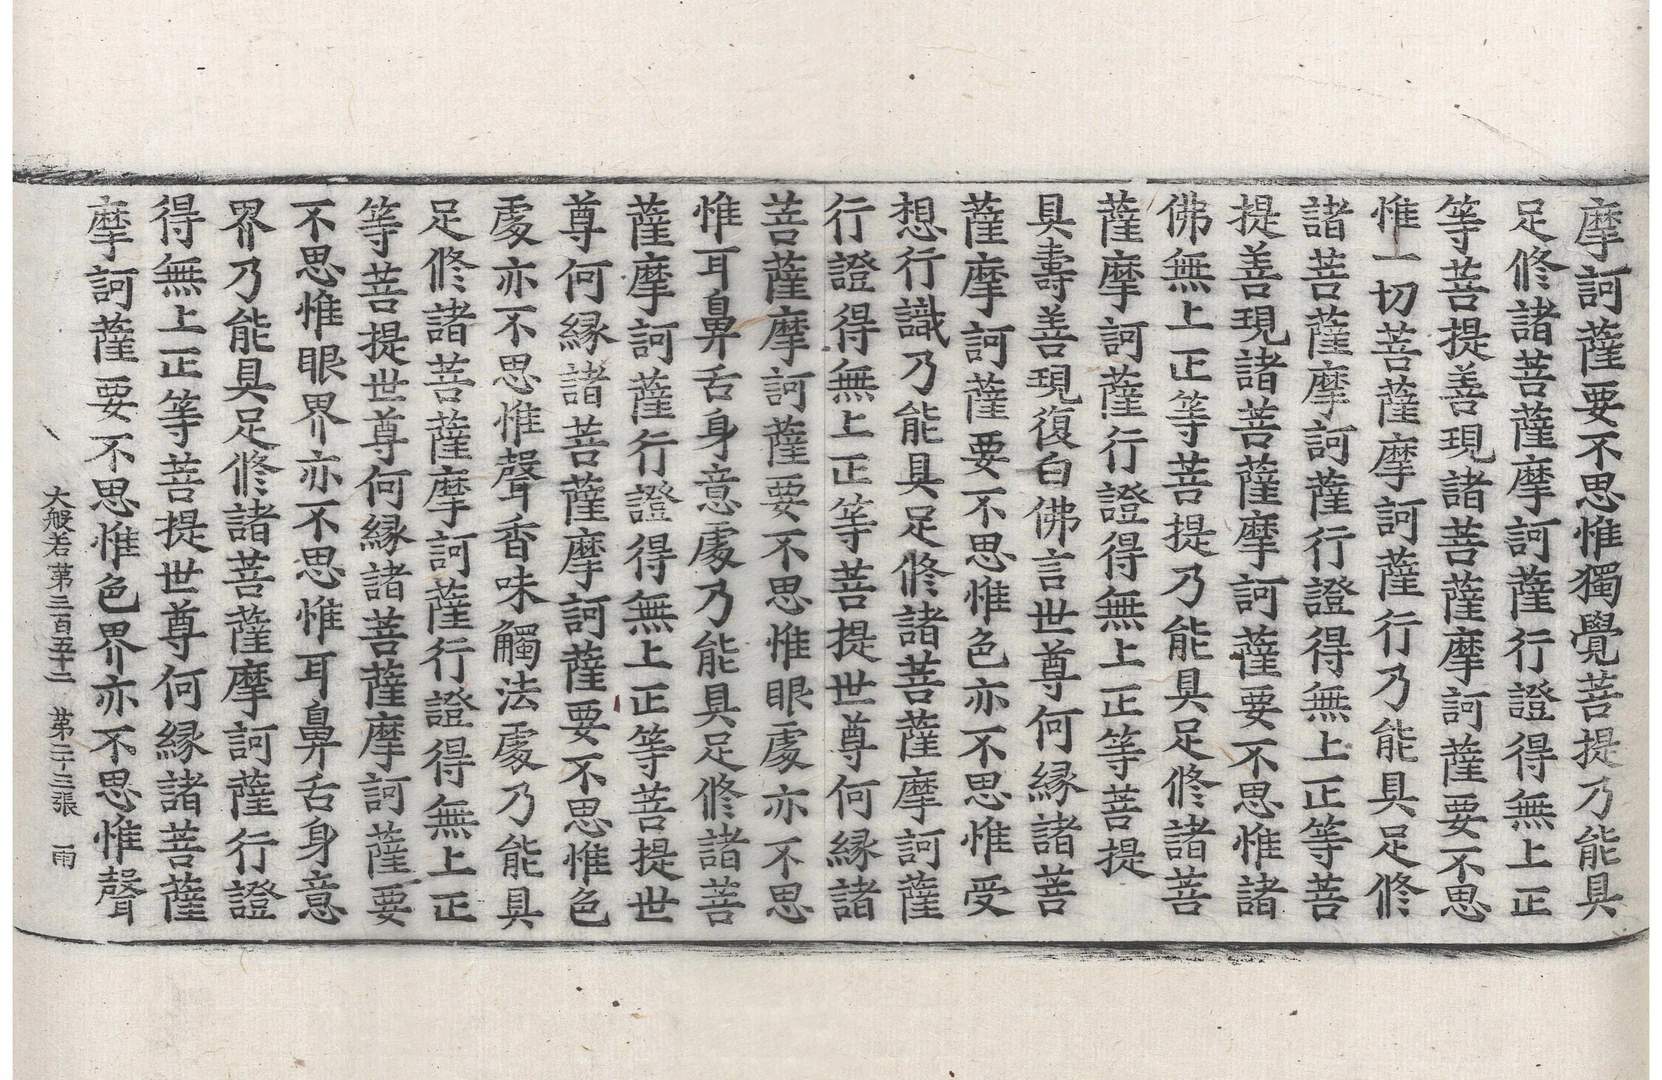 摩訶薩要不思惟獨覺菩提乃能具
足修諸菩薩摩訶薩行證得無上正
等菩提善現諸菩薩摩訶薩要不思
惟一切菩薩摩訶薩行乃能具足修
諸菩薩摩訶薩行證得無上正等菩
提善現諸菩薩摩訶薩要不思惟諸
佛無上正等菩提乃能具足修諸菩
薩摩訶薩行證得無上正等菩提
具壽善現復白佛言世尊何緣諸菩
薩摩訶薩要不思惟色亦不思惟受
想行識乃能具足修諸菩薩摩訶薩
行證得無上正等菩提世尊何緣諸
菩薩摩訶薩要不思惟眼處亦不思
惟耳鼻舌身意處乃能具足修諸菩
薩摩訶薩行證得無上正等菩提世
尊何緣諸菩薩摩訶薩要不思惟色
處亦不思惟聲香味觸法處乃能具
足修諸菩薩摩訶薩行證得無上正
等菩提世尊何緣諸菩薩摩訶薩要
不思惟眼界亦不思惟耳鼻舌身意
界乃能具足修諸菩薩摩訶薩行證
得無上正等菩提世尊何緣諸菩薩
摩訶薩要不思惟色界亦不思惟聲
大般若第三百五十二 第二十三張 雨